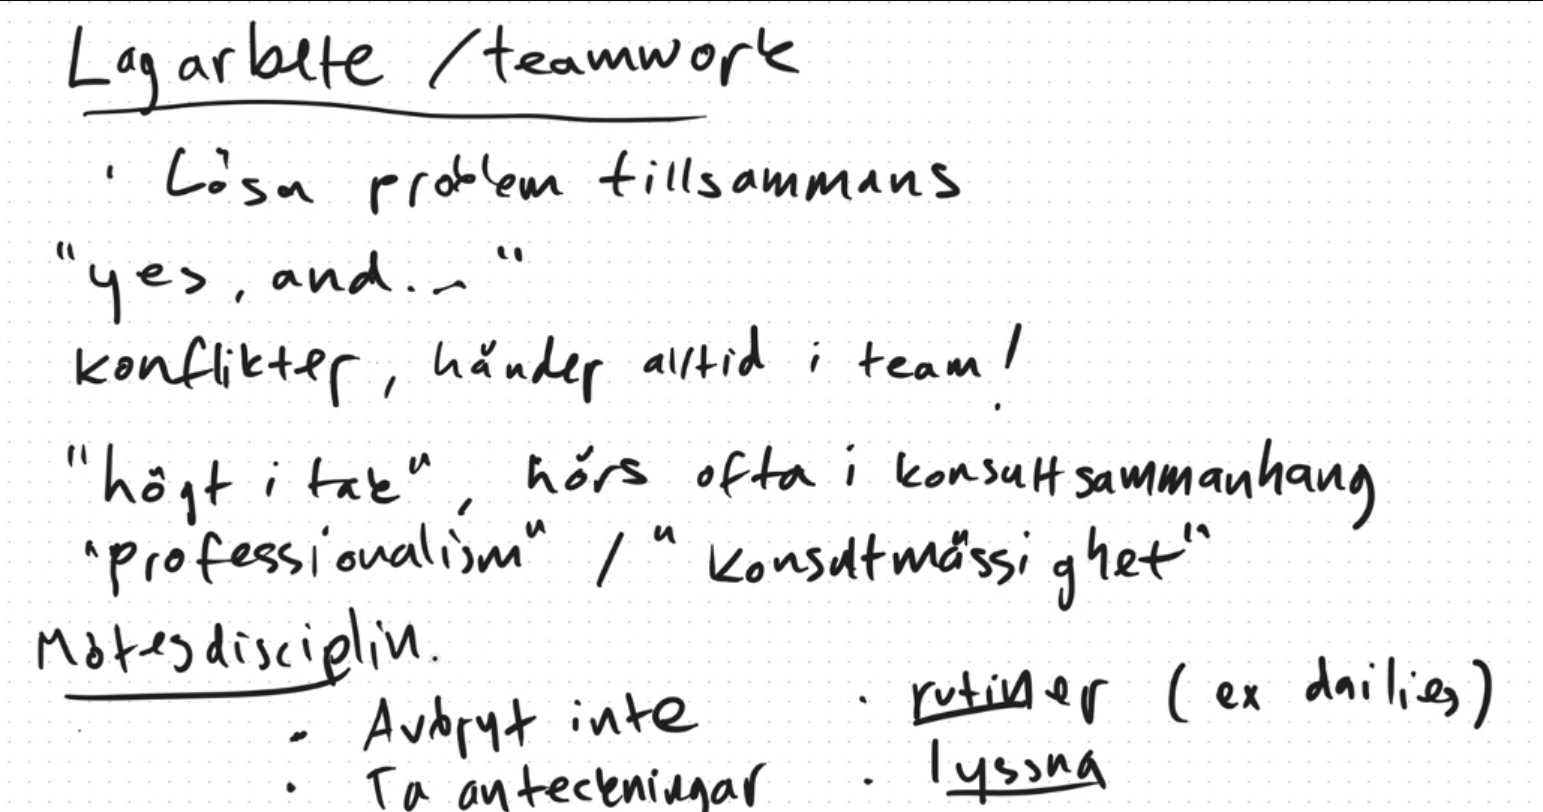 Lagarbete / teamwork
· Lösa problem tillsammans
"yes, and..."
konflikter, händer alltid i team!
"högt i tak", hörs ofta i konsultsammanhang
"professionalism" / "konsultmässighet"
Mötesdisciplin.
· Avbryt inte · rutiner (ex dailies)
· Ta anteckningar · lyssna